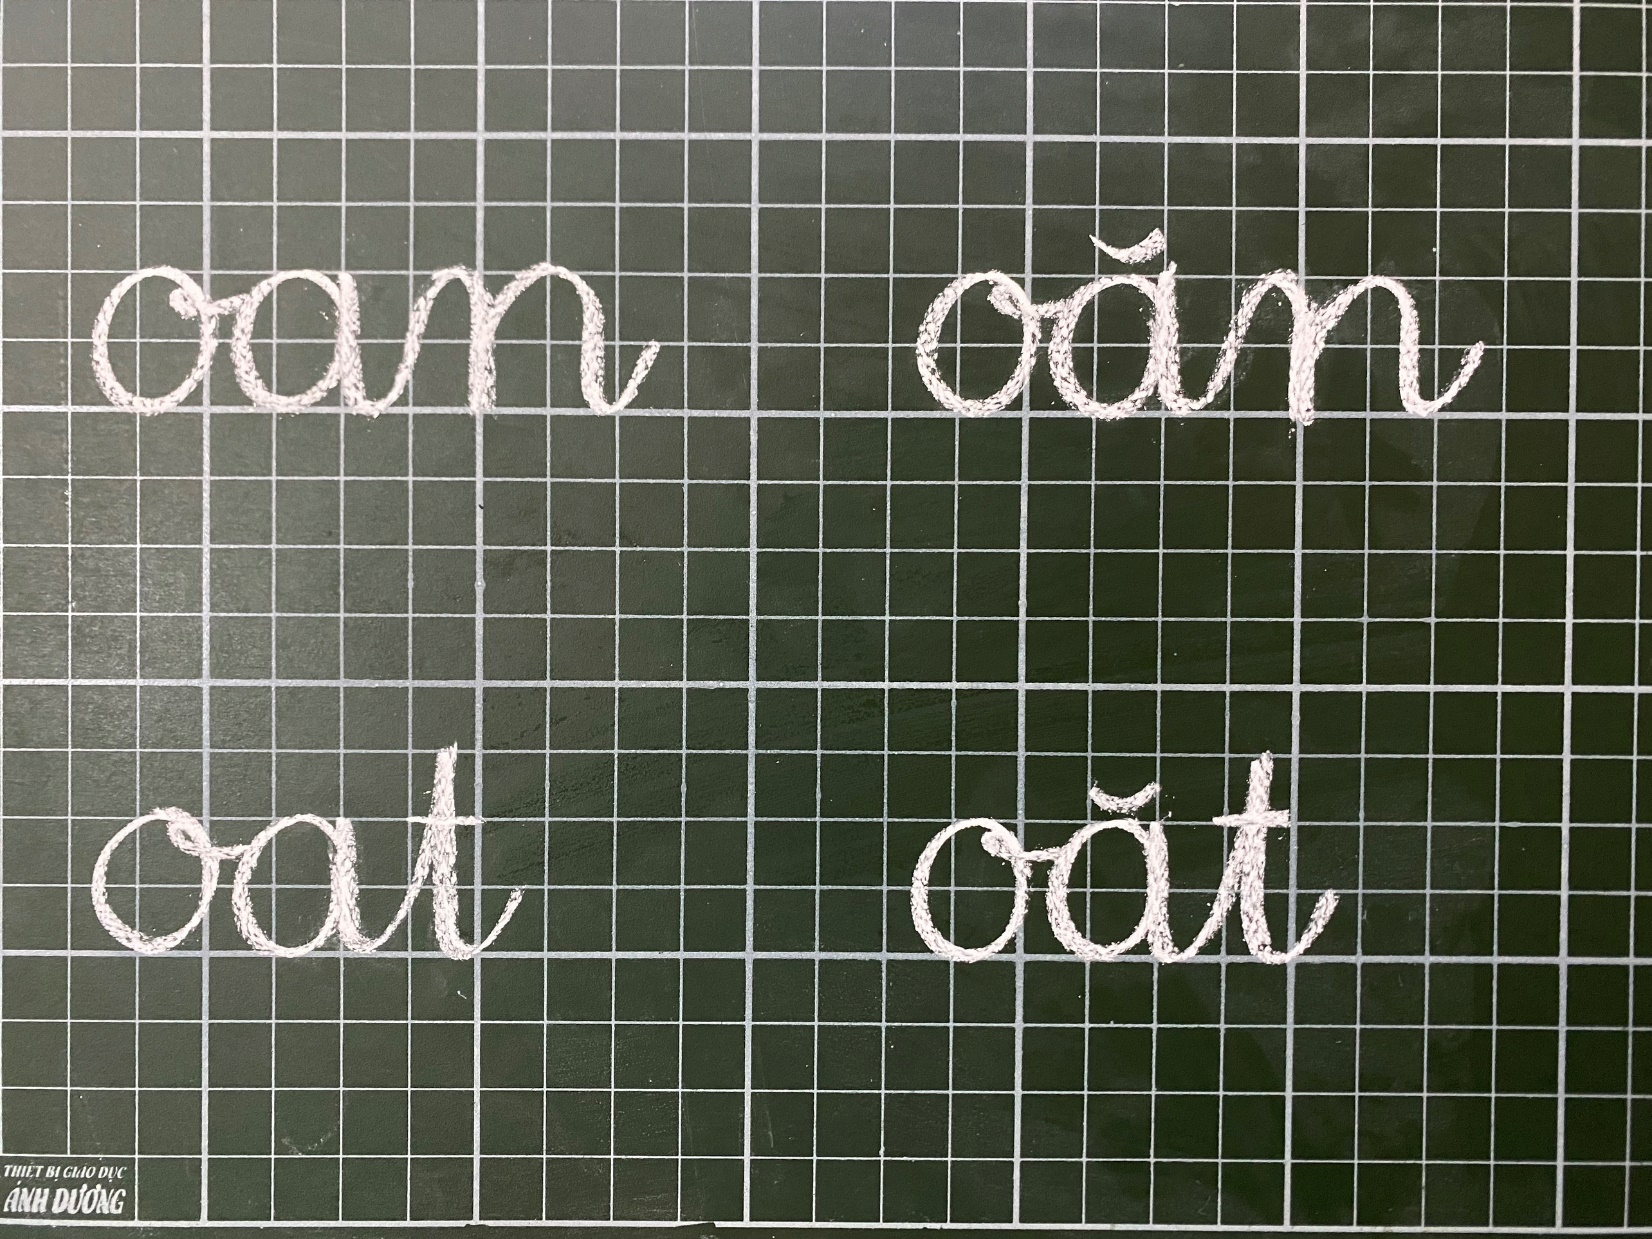 oan oăn
oat oăt
THIẾT BỊ GIÁO DỤC
ÁNH DƯƠNG